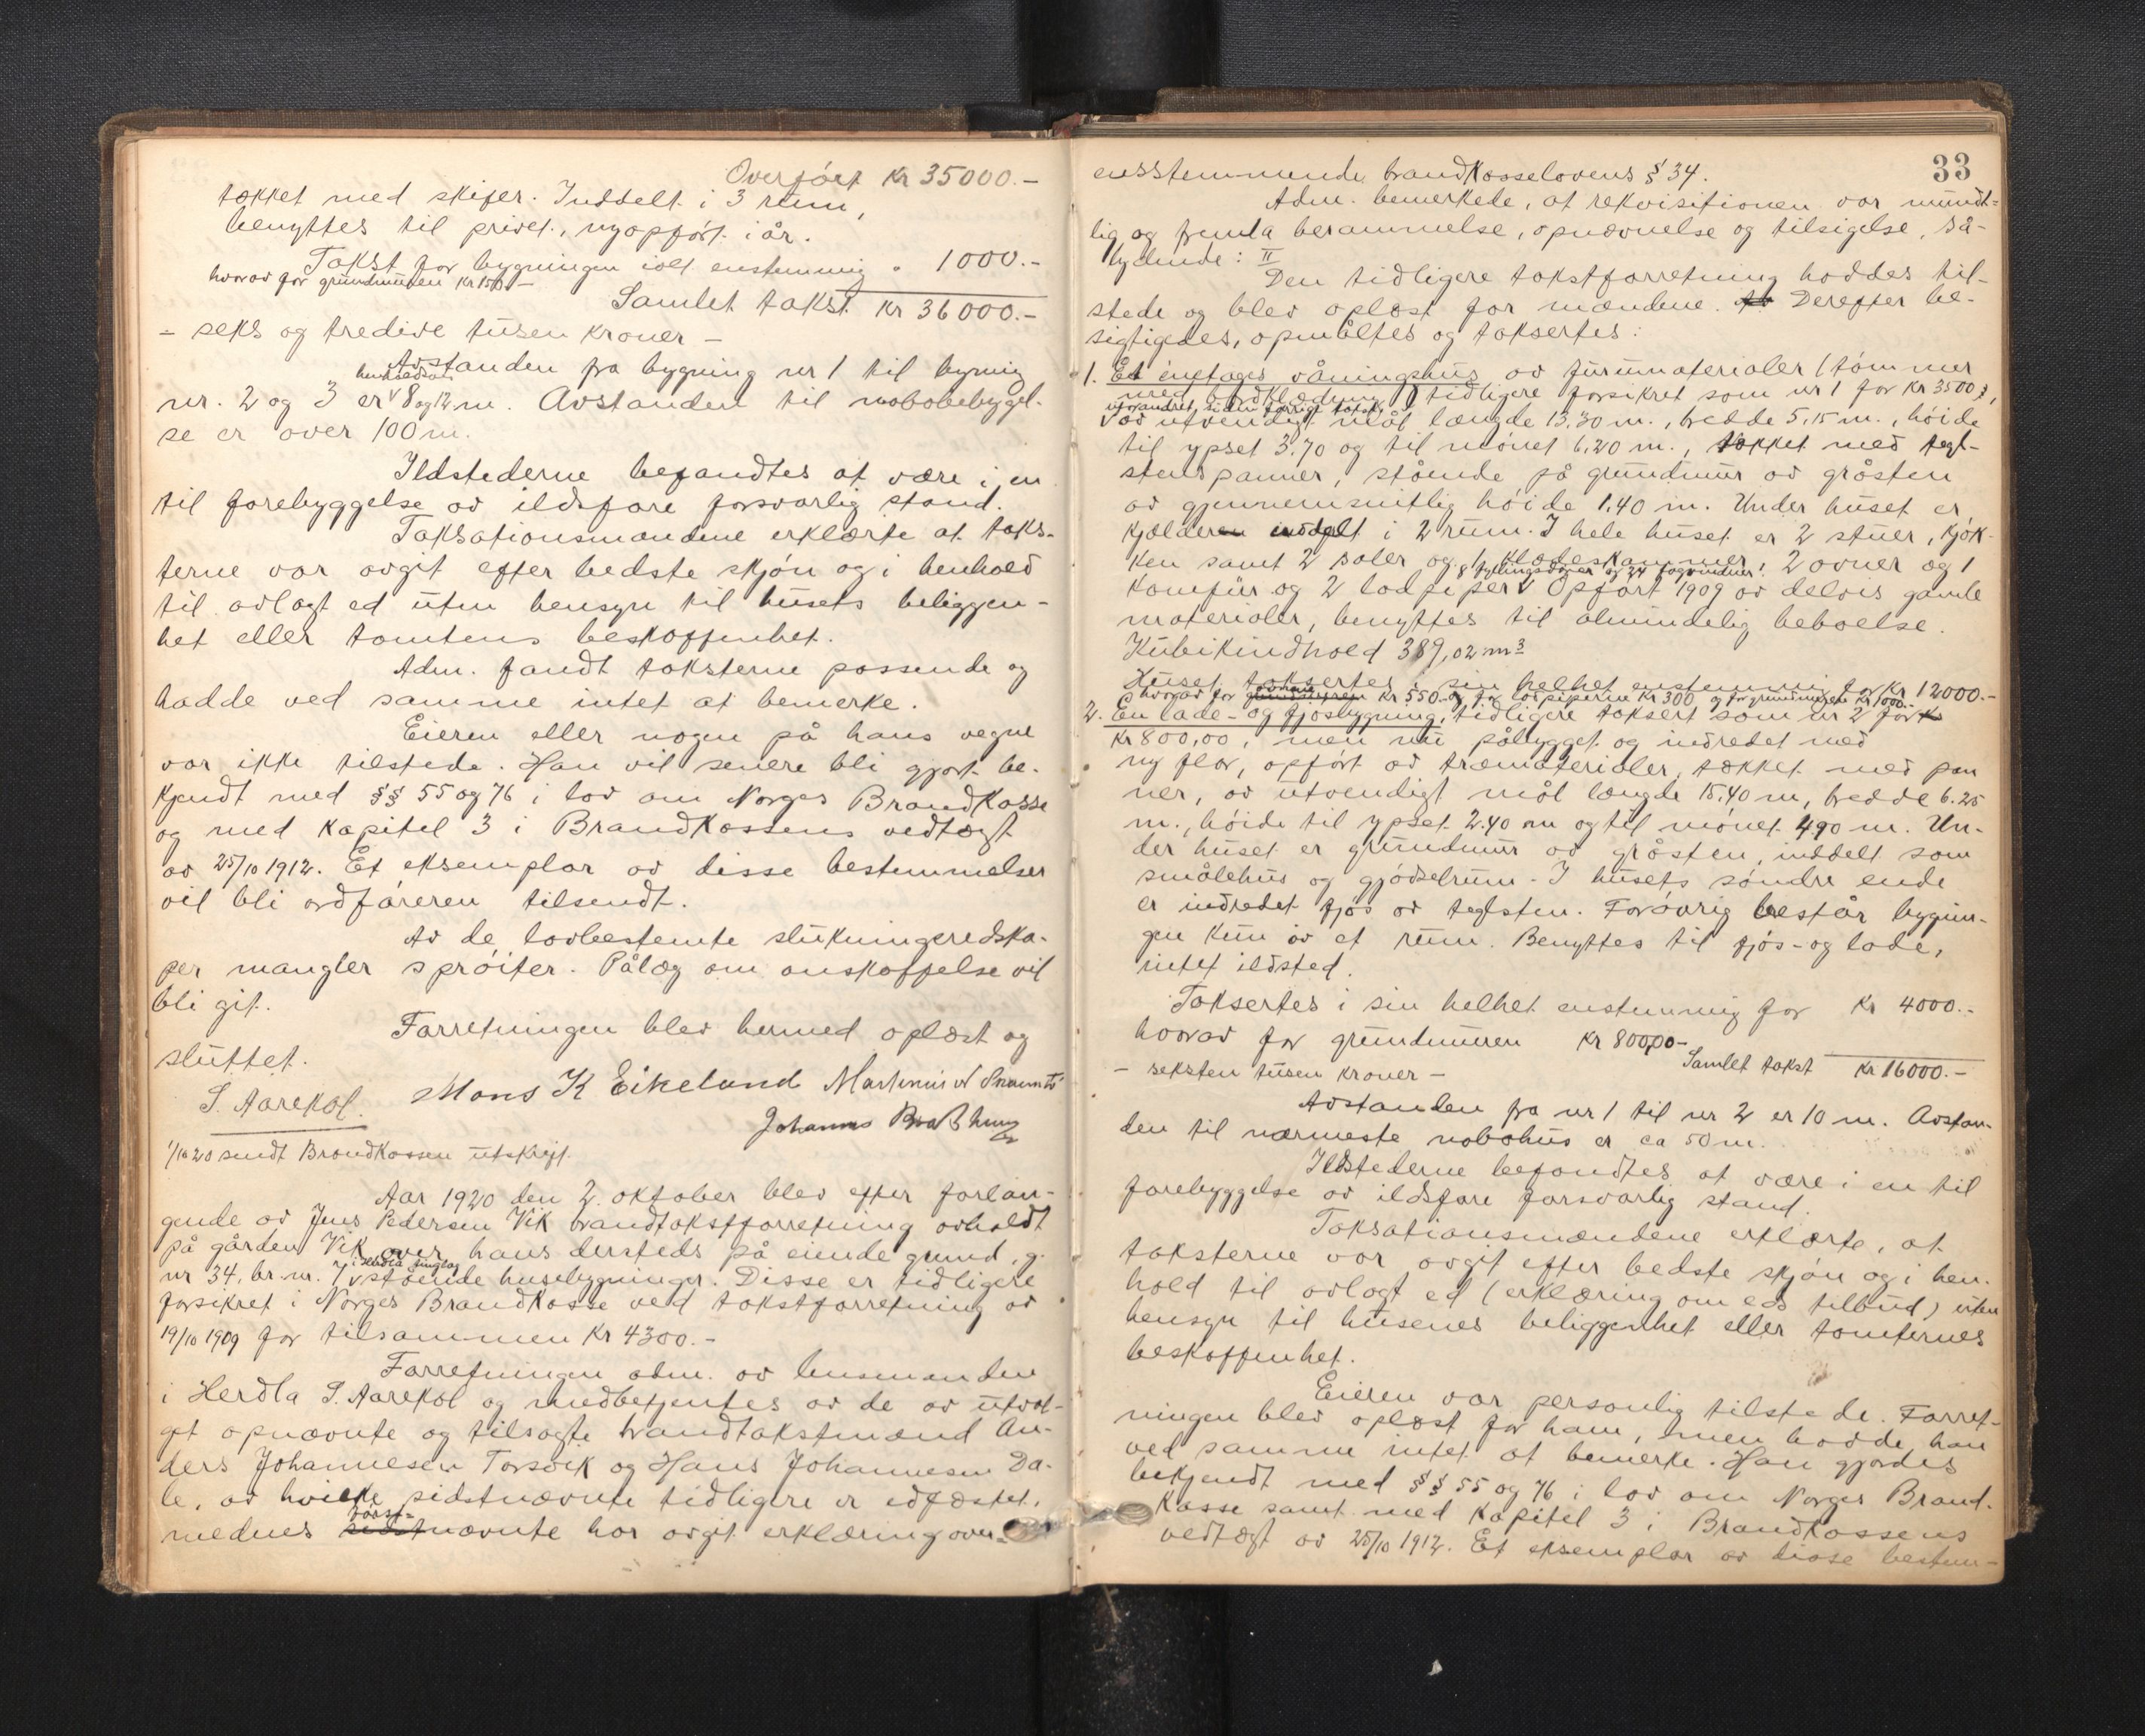 Overført Kr 35000.-
tækket med skifer. Inddelt i 3 rum,
benyttes til privet, nyopført i år.
Takst for bygningen ialt enstemmig " 1000.-
hvorav for grundmuren Kr 150.-
Samlet takst Kr 36000.-
- seks og tredive tusen kroner -
Avstanden fra bygning nr 1 til bygning
henholdsvis
nr. 2 og 3 er 8 og 12 m. Avstanden til nabobebyggel-
se er over 100 m.
Ildstederne befandtes at være i en
til forebyggelse av ildsfare forsvarlig stand.
Taksationsmændene erklærte at taks-
terne var avgit efter bedste skjøn og i henhold
til avlagt ed uten hensyn til husets beliggen-
het eller tomtens beskaffenhet.
Adm. fandt taksterne passende og
hadde ved samme intet at bemerke.
Eieren eller nogen på hans vegne
var ikke tilstede. Han vil senere bli gjort be-
kjendt med §§ 55 og 76 i lov om Norges Brandkasse
og med kapitel 3 i Brandkassens vedtægt
av 25/10 1912. Et eksemplar av disse bestemmelser
vil bli ordføreren tilsendt.
Av de lovbestemte slukningsredska-
per mangler sprøiter. Pålæg om anskaffelse vil
bli git.
Forretningen blev hermed oplæst og
sluttet.
S. Aarekol. Mons K Eikeland Martinius
Johannes
1/10 20 sendt Brandkassen utskrift.
Aar 1920 den 2. oktober blev efter forlan-
gende av Jens Pedersen Vik brandtakstforretning avholdt
på gården Vik over hans dersteds på eiende grund, g.
i Herdla tinglag
nr 34, br. nr. 7 stående husebygninger. Disse er tidligere
forsikret i Norges Brandkasse ved takstforretning av
19/10 1909 for tilsammen Kr 4300.-
Forretningen adm. av lensmanden
i Herdla S. Aarekol og medbetjentes av de av utval-
get opnævnte og tilsagte brandtakstmænd An-
ders Johannesen Torsvik og Hans Johannesen Da-
le, av hvilke sidstnævnte tidligere er edfæstet,
først-
medens sidstnævnte har avgit erklæring over-
33
ensstemmende brandkasselovens § 34.
Adm. bemerkede, at rekvisitionen var mundt-
lig og fremla berammelse, opnævnelse og tilsigelse, så-
lydende: II
Den tidligere takstforretning haddes til-
stede og blev oplæst for mændene. Derefter be-
sigtigedes, opmåltes og taksertes:
1. Et énetages våningshus av furumaterialer (tømmer
med bordklædning) tidligere forsikret som nr 1 for Kr 3500,-,
uforandret siden forrige takst,
av utvendigt mål længde 13.30 m., bredde 5,15 m., høide
til ypset 3.70 og til mønet 6,20 m., tækket med tegl-
stenspanner, stående på grundmur av gråsten
av gjennemsnitlig høide 1.40 m. Under huset er
kjælderen inddelt i 2 rum. I hele huset er 2 stuer, kjøk-
ken samt 2 saler og 1 klædeskammer, 2 ovner og 1
8 fyllingsdører og 24 fagvinduer.
komfur og 2 lodpiper. Opført 1909 av delvis gamle
materialer, benyttes til almindelig beboelse.
Kubikindhold 389,02 m3
Huset taksertes i sin helhet enstemmig for Kr 12000.-
hvorav for grundmuren Kr 550.- og for lodpiperne Kr 300 og for grundmuren Kr 1000.-
2. En lade- og fjøsbygning, tidligere taksert som nr 2 for Kr
Kr 800,00, men nu påbygget og indredet med
ny flor, opført av træmaterialer, tækket med pan
ner, av utvendigt mål længde 15.40 m, bredde 6.25
m., høide til ypset 2.40 m og til mønet 4.90 m. Un-
der huset er grundmur av gråsten, inddelt som
smålehus og gjødselrum. I husets søndre ende
er indredet fjøs av teglsten. Forøvrig består bygnin-
gen kun av et rum. Benyttes til fjøs- og lade,
intet ildsted.
Taksertes i sin helhet enstemmig for Kr 4000.-
hvorav for grundmuren Kr 800,00-
Samlet takst Kr 16000.-
- seksten tusen kroner -
Avstanden fra nr 1 til nr 2 er 10 m. Avstan-
den til nærmeste nabohus er ca 50 m.
Ildstederne befandtes at være i en til
forebyggelse av ildsfare forsvarlig stand.
Taksationsmændene erklærte, at
taksterne var avgit efter bedste skjøn og i hen-
hold til avlagt ed (erklæring om eds tilbud) uten
hensyn til husenes beliggenhet eller tomternes
beskaffenhet.
Eieren var personlig tilstede. Forret-
ningen blev oplæst for ham, men hadde han
ved samme intet at bemerke. Han gjordes
bekjendt med §§ 55 og 76 i lov om Norges Brand-
kasse samt med kapitel 3 i Brandkassens
vedtægt av 25/10 1912. Et eksemplar av disse bestem-